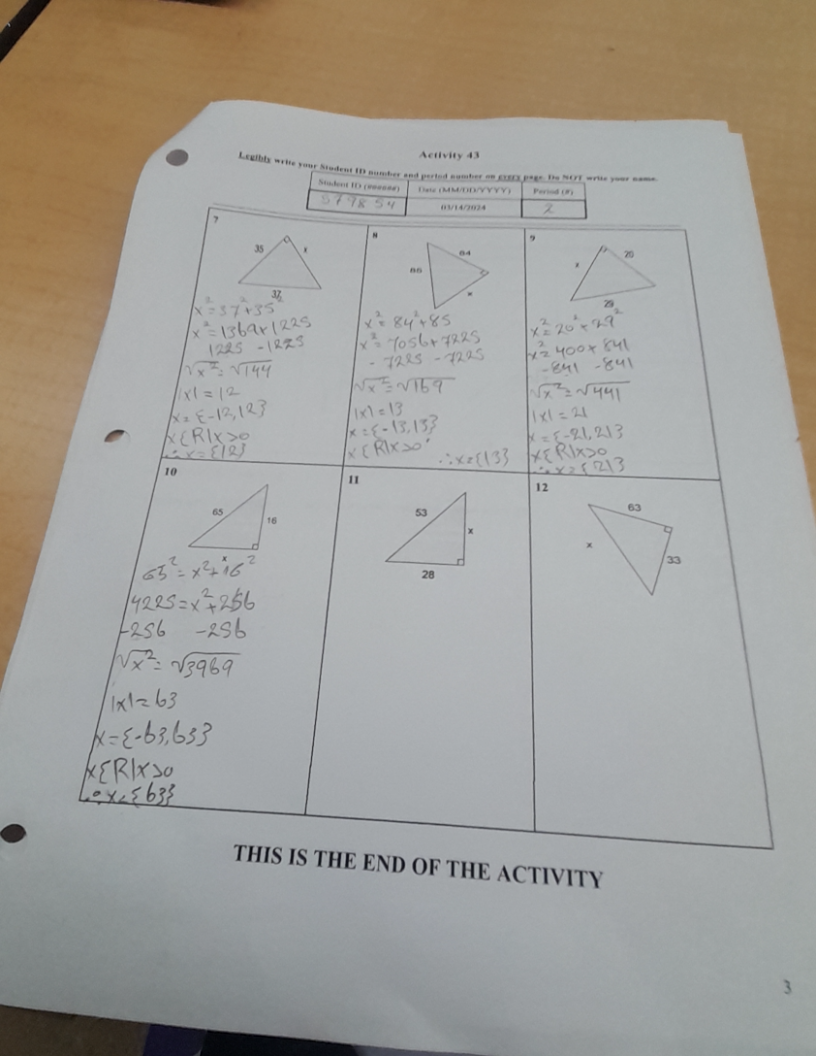 Activity 43
Legibly write your Student ID number and period number on every page. Do NOT write your name.
Student ID (######) Date (MM/DD/YYYY) Period (#)
579854 03/14/2024 2
7
35 x
37
x²=37²+35²
x²=1369+1225
1225 -1225
√x²=√144
|x|=12
x={-12,12}
x{R|x>0
∴x={12}
8
84
85
x
x²=84²+85
x²=7056+7225
-7225 -7225
√x²=√169
|x|=13
x={-13,13}
x{R|x>0
∴x={13}
9
20
x
29
x²=20²+29²
x²=400+841
-841 -841
√x²=√441
|x|=21
x={-21,21}
x{R|x>0
∴x={21}
10
65
16
x
65²=x²+16²
4225=x²+256
-256 -256
√x²=√3969
|x|=63
x={-63,63}
x{R|x>0
∴x={63}
11
53
x
28
12
63
x
33
THIS IS THE END OF THE ACTIVITY
3